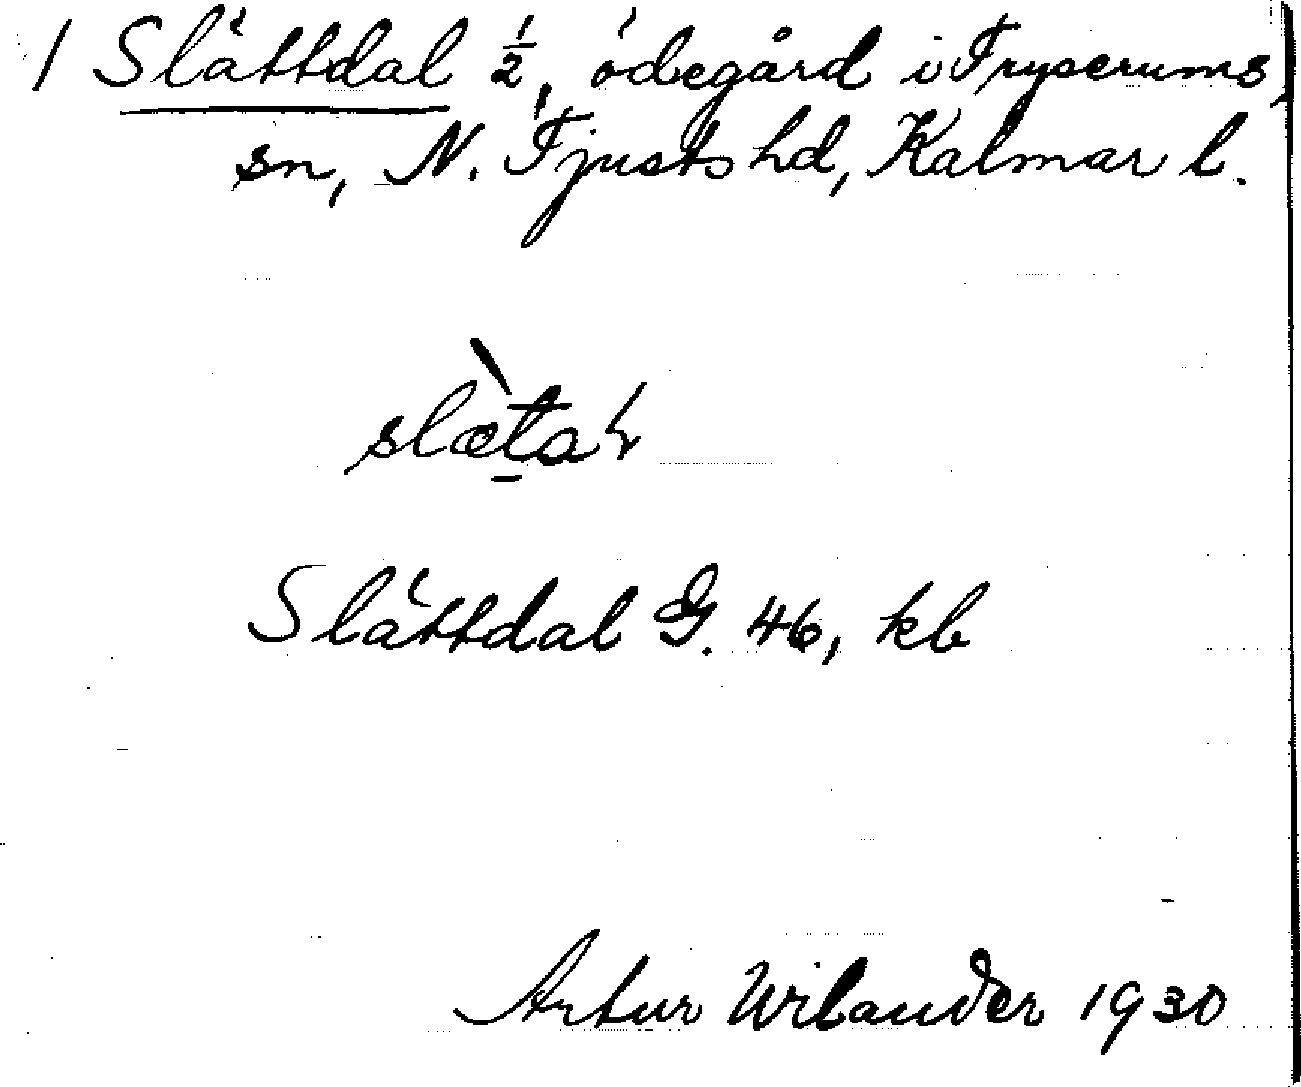 1 Slättdal 1/2, ödegård i Tryserums
sn, N. Tjusts hd, Kalmar l.
Slättdal G. 46, kb
Artur Wilander 1930